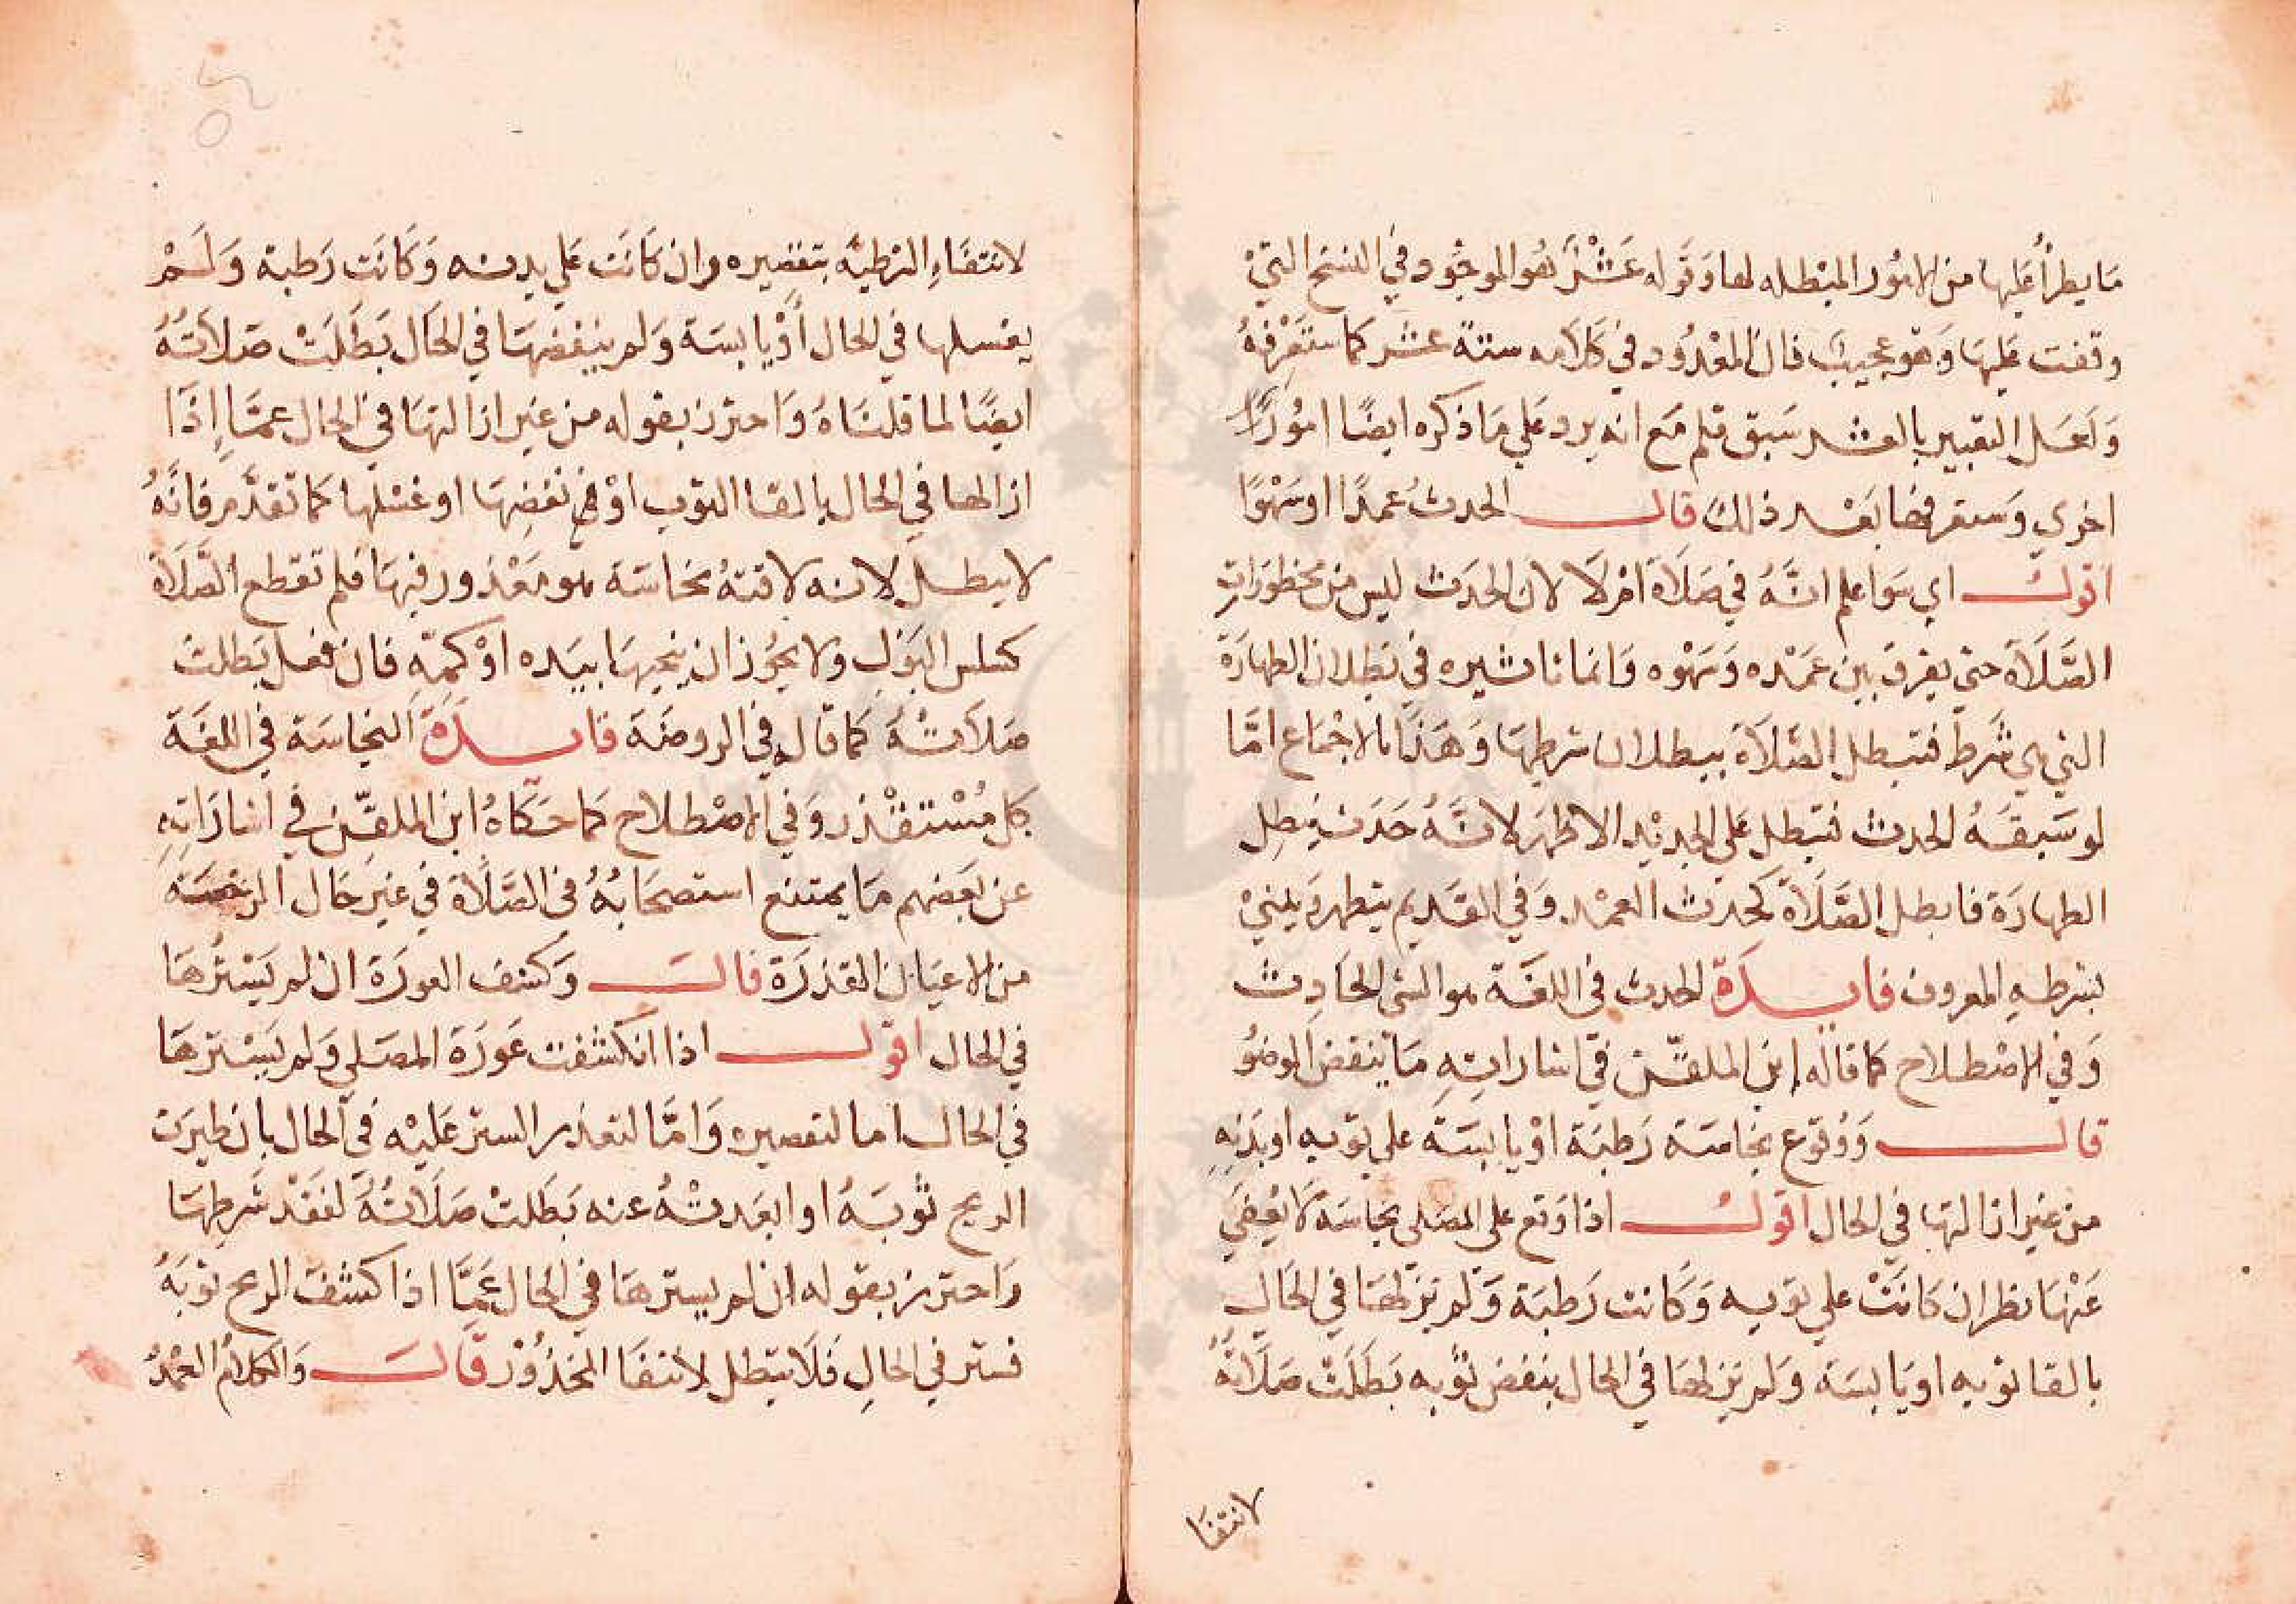 ما يطرأ عليها من الامور المبطله لها وقوله عشر هو الموجود في النسخ التي
وقفت عليها وهو عجيب فان المعدود في كلامه ستة عشر كما ستعرفه
ولعل التعبير بالعشر سبق قلم مع انه يرد علي ما ذكره ايضا امورا
اخري وستعرفها بعد ذلك قال الحدث عمدا او سهوا
اقول اي سوا علم انه في صلاة ام لا لان الحدث ليس من محظورات
الصلاة حتي يفرق بين عمده وسهوه وانما تاثيره في بطلان الطهارة
التي هي شرط فتبطل الصلاة ببطلان شرطها وهذا بالاجماع امّا
لو سبقه الحدث فتبطل علي الجديد الاظهر لانه حدث يبطل
الطهارة فابطل الصلاة كحدث العمد وفي القديم يتطهر ويبني
بشرطه المعروف فايدة الحدث في اللغة هو الشي الحادث
وفي الاصطلاح كما قاله ابن الملقن في اشاراته ما ينقض الوضو
قال ووقوع نجاسة رطبة او يابسة علي ثوبه او بدنه
من غير ازالتها في الحال اقول اذا وقع علي المصلي نجاسة لا يعفي
عنها نظر ان كانت علي ثوبه وكانت رطبة ولم يزلها في الحال
بالقا ثوبه او يابسة ولم يزلها في الحال بنفض ثوبه بطلت صلاته
لانتفا
لانتفاء الشرطية بتقصيره وان كانت علي بدنه وكانت رطبة ولم
يغسلها في الحال أو يابسة ولم ينفضها في الحال بطلت صلاته
ايضا لما قلناه واحترز بقوله من غير ازالتها في الحال عمّا إذا
ازالها في الحال بالقا الثوب او نفضها او غسلها كما تقدّم فانّه
لا يبطل لانه لاقته نجاسة هو معذور فيها فلم تقطع الصلاة
كسلس البول ولا يجوز ان ينحيها بيده او كمّه فان فعل بطلت
صلاته كما قال في الروضة فايدة النجاسة في اللغة
كل مستقذر وفي الاصطلاح كما حكاه ابن الملقّن في اشاراته
عن بعضهم ما يمتنع استصحابه في الصلاة في غير حال الرخصة
من الاعيان القذرة قال وكشف العورة ان لم يسترها
في الحال اقول اذا انكشفت عورة المصلي ولم يسترها
في الحال اما لتقصيره وامّا لتعذر الستر عليه في الحال بان طيرت
الريح ثوبه او ابعدته عنه بطلت صلاته لفقد شرطها
واحترز بقوله ان لم يسترها في الحال عمّا اذا كشف الريح ثوبه
فستر في الحال فلا تبطل لانتفا المحذور قال والكلام العمد